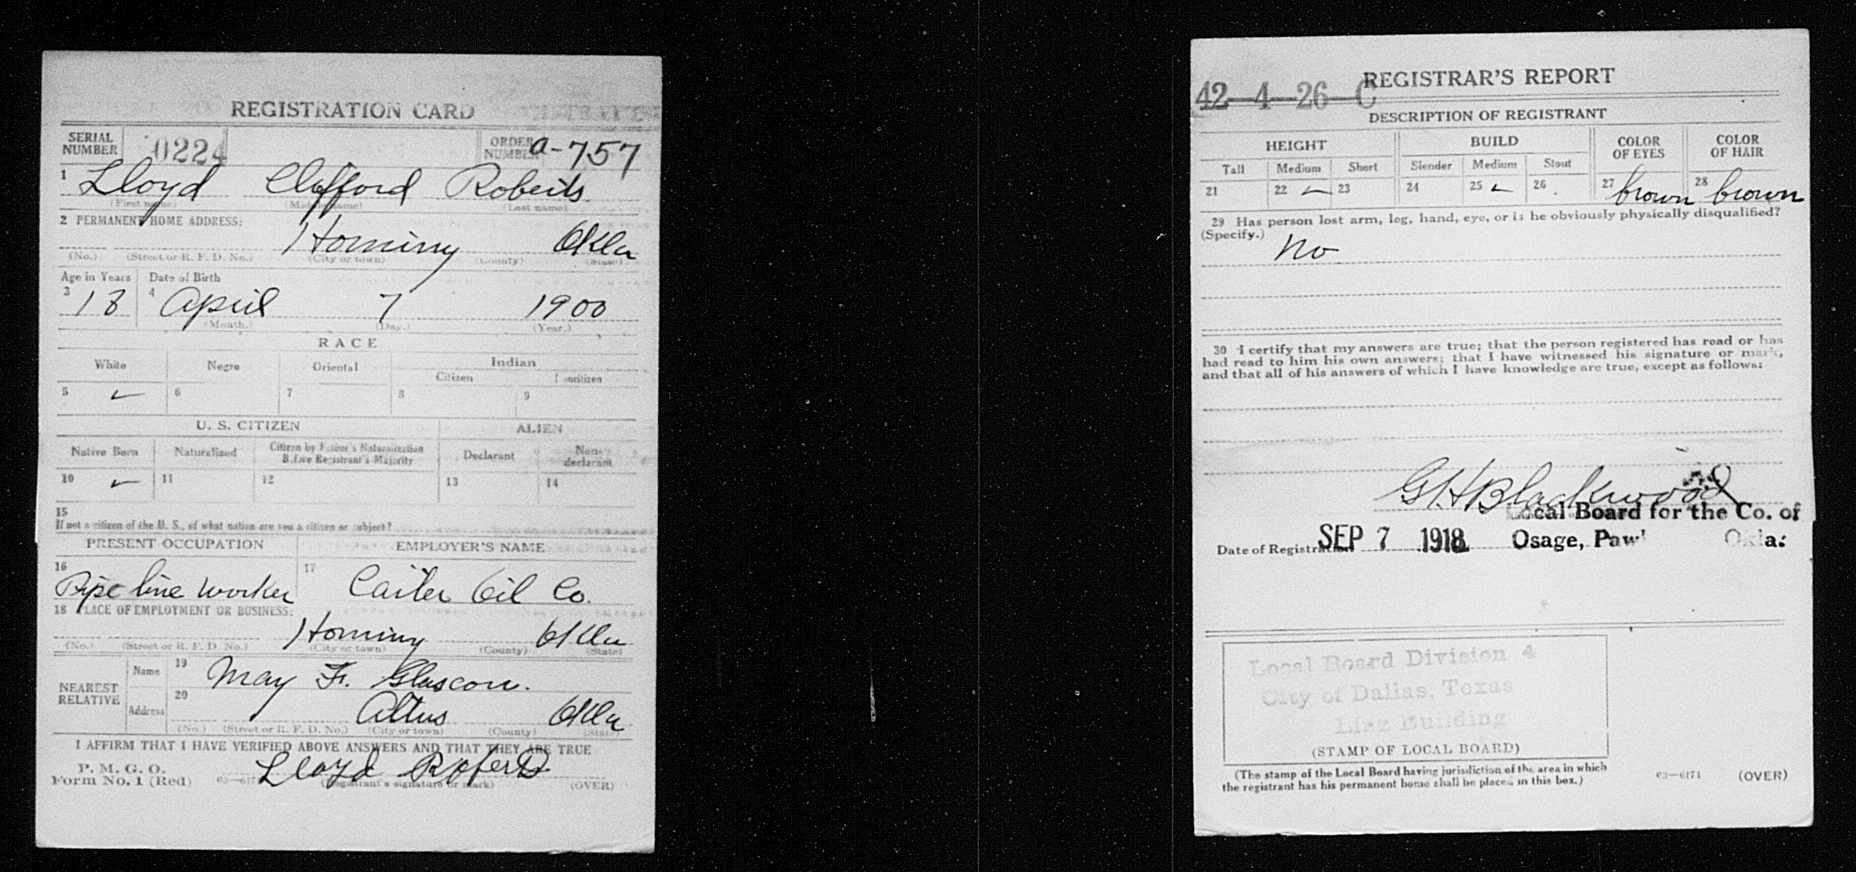 REGISTRATION CARD
SERIAL NUMBER 0224 ORDER NUMBER a-757
1 Lloyd Clifford Roberts
(First name) (Middle name) (Last name)
2 PERMANENT HOME ADDRESS:
Hominy Okla
(No.) (Street or R. F. D. No.) (City or town) (County) (State)
Age in Years Date of Birth
3 18 4 April 7 1900
(Month.) (Day.) (Year.)
RACE
White Negro Oriental Indian
Citizen Noncitizen
5 ✓ 6 7 8 9
U. S. CITIZEN ALIEN
Native Born Naturalized Citizen by Father's Naturalization Before Registrant's Majority Declarant Non-declarant
10 ✓ 11 12 13 14
15
If not a citizen of the U. S., of what nation are you a citizen or subject?
PRESENT OCCUPATION EMPLOYER'S NAME
16 Pipe line worker 17 Carter Oil Co.
18 PLACE OF EMPLOYMENT OR BUSINESS:
Hominy Okla
(No.) (Street or R. F. D. No.) (City or town) (County) (State)
NEAREST RELATIVE Name 19 May F. Glascow.
Address 20 Altus Okla
(No.) (Street or R. F. D. No.) (City or town) (County) (State)
I AFFIRM THAT I HAVE VERIFIED ABOVE ANSWERS AND THAT THEY ARE TRUE
P. M. G. O.
Form No. 1 (Red) Lloyd Roberts
(Registrant's signature or mark) (OVER)
42-4-26-C REGISTRAR'S REPORT
DESCRIPTION OF REGISTRANT
HEIGHT BUILD COLOR OF EYES COLOR OF HAIR
Tall Medium Short Slender Medium Stout
21 22 ✓ 23 24 25 ✓ 26 27 brown 28 brown
29 Has person lost arm, leg, hand, eye, or is he obviously physically disqualified?
(Specify.) No
30 I certify that my answers are true; that the person registered has read or has
had read to him his own answers; that I have witnessed his signature or mark,
and that all of his answers of which I have knowledge are true, except as follows:
G H Blackwood
Local Board for the Co. of
Date of Registration SEP 7 1918 Osage, Okla:
Local Board Division 4
City of Dallas, Texas
Building
(STAMP OF LOCAL BOARD)
(The stamp of the Local Board having jurisdiction of the area in which
the registrant has his permanent home shall be placed in this box.)
03—6171 (OVER)